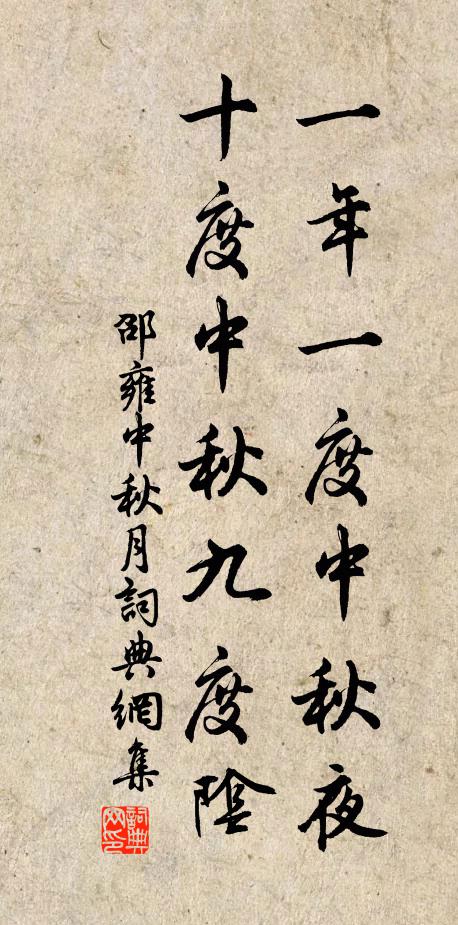 一年一度中秋夜
十度中秋九度陰
邵雍中秋月詞典網集
詞典网印